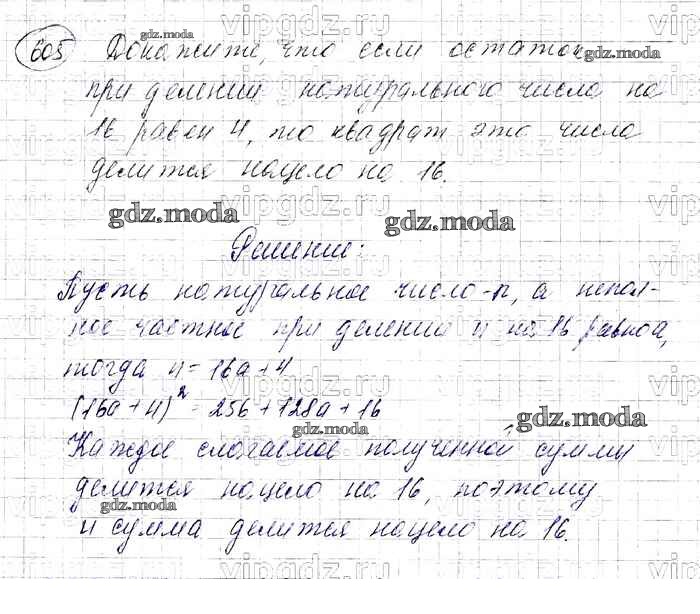 605 Докажите, что если остаток
при делении натурального числа на
16 равен 4, то квадрат это числа
делится нацело на 16.
Решение:
Пусть натуральное число - n, а непол-
ное частное при делении n на 16 равно a,
тогда n = 16a + 4
(16a + 4)² = 256 + 128a + 16
Каждое слагаемое полученной суммы
делится нацело на 16, поэтому
и сумма делится нацело на 16.
gdz.moda
gdz.moda
gdz.moda
gdz.moda
gdz.moda
gdz.moda
gdz.moda
vipgdz.ru
vipgdz.ru
vipgdz.ru
vipgdz.ru